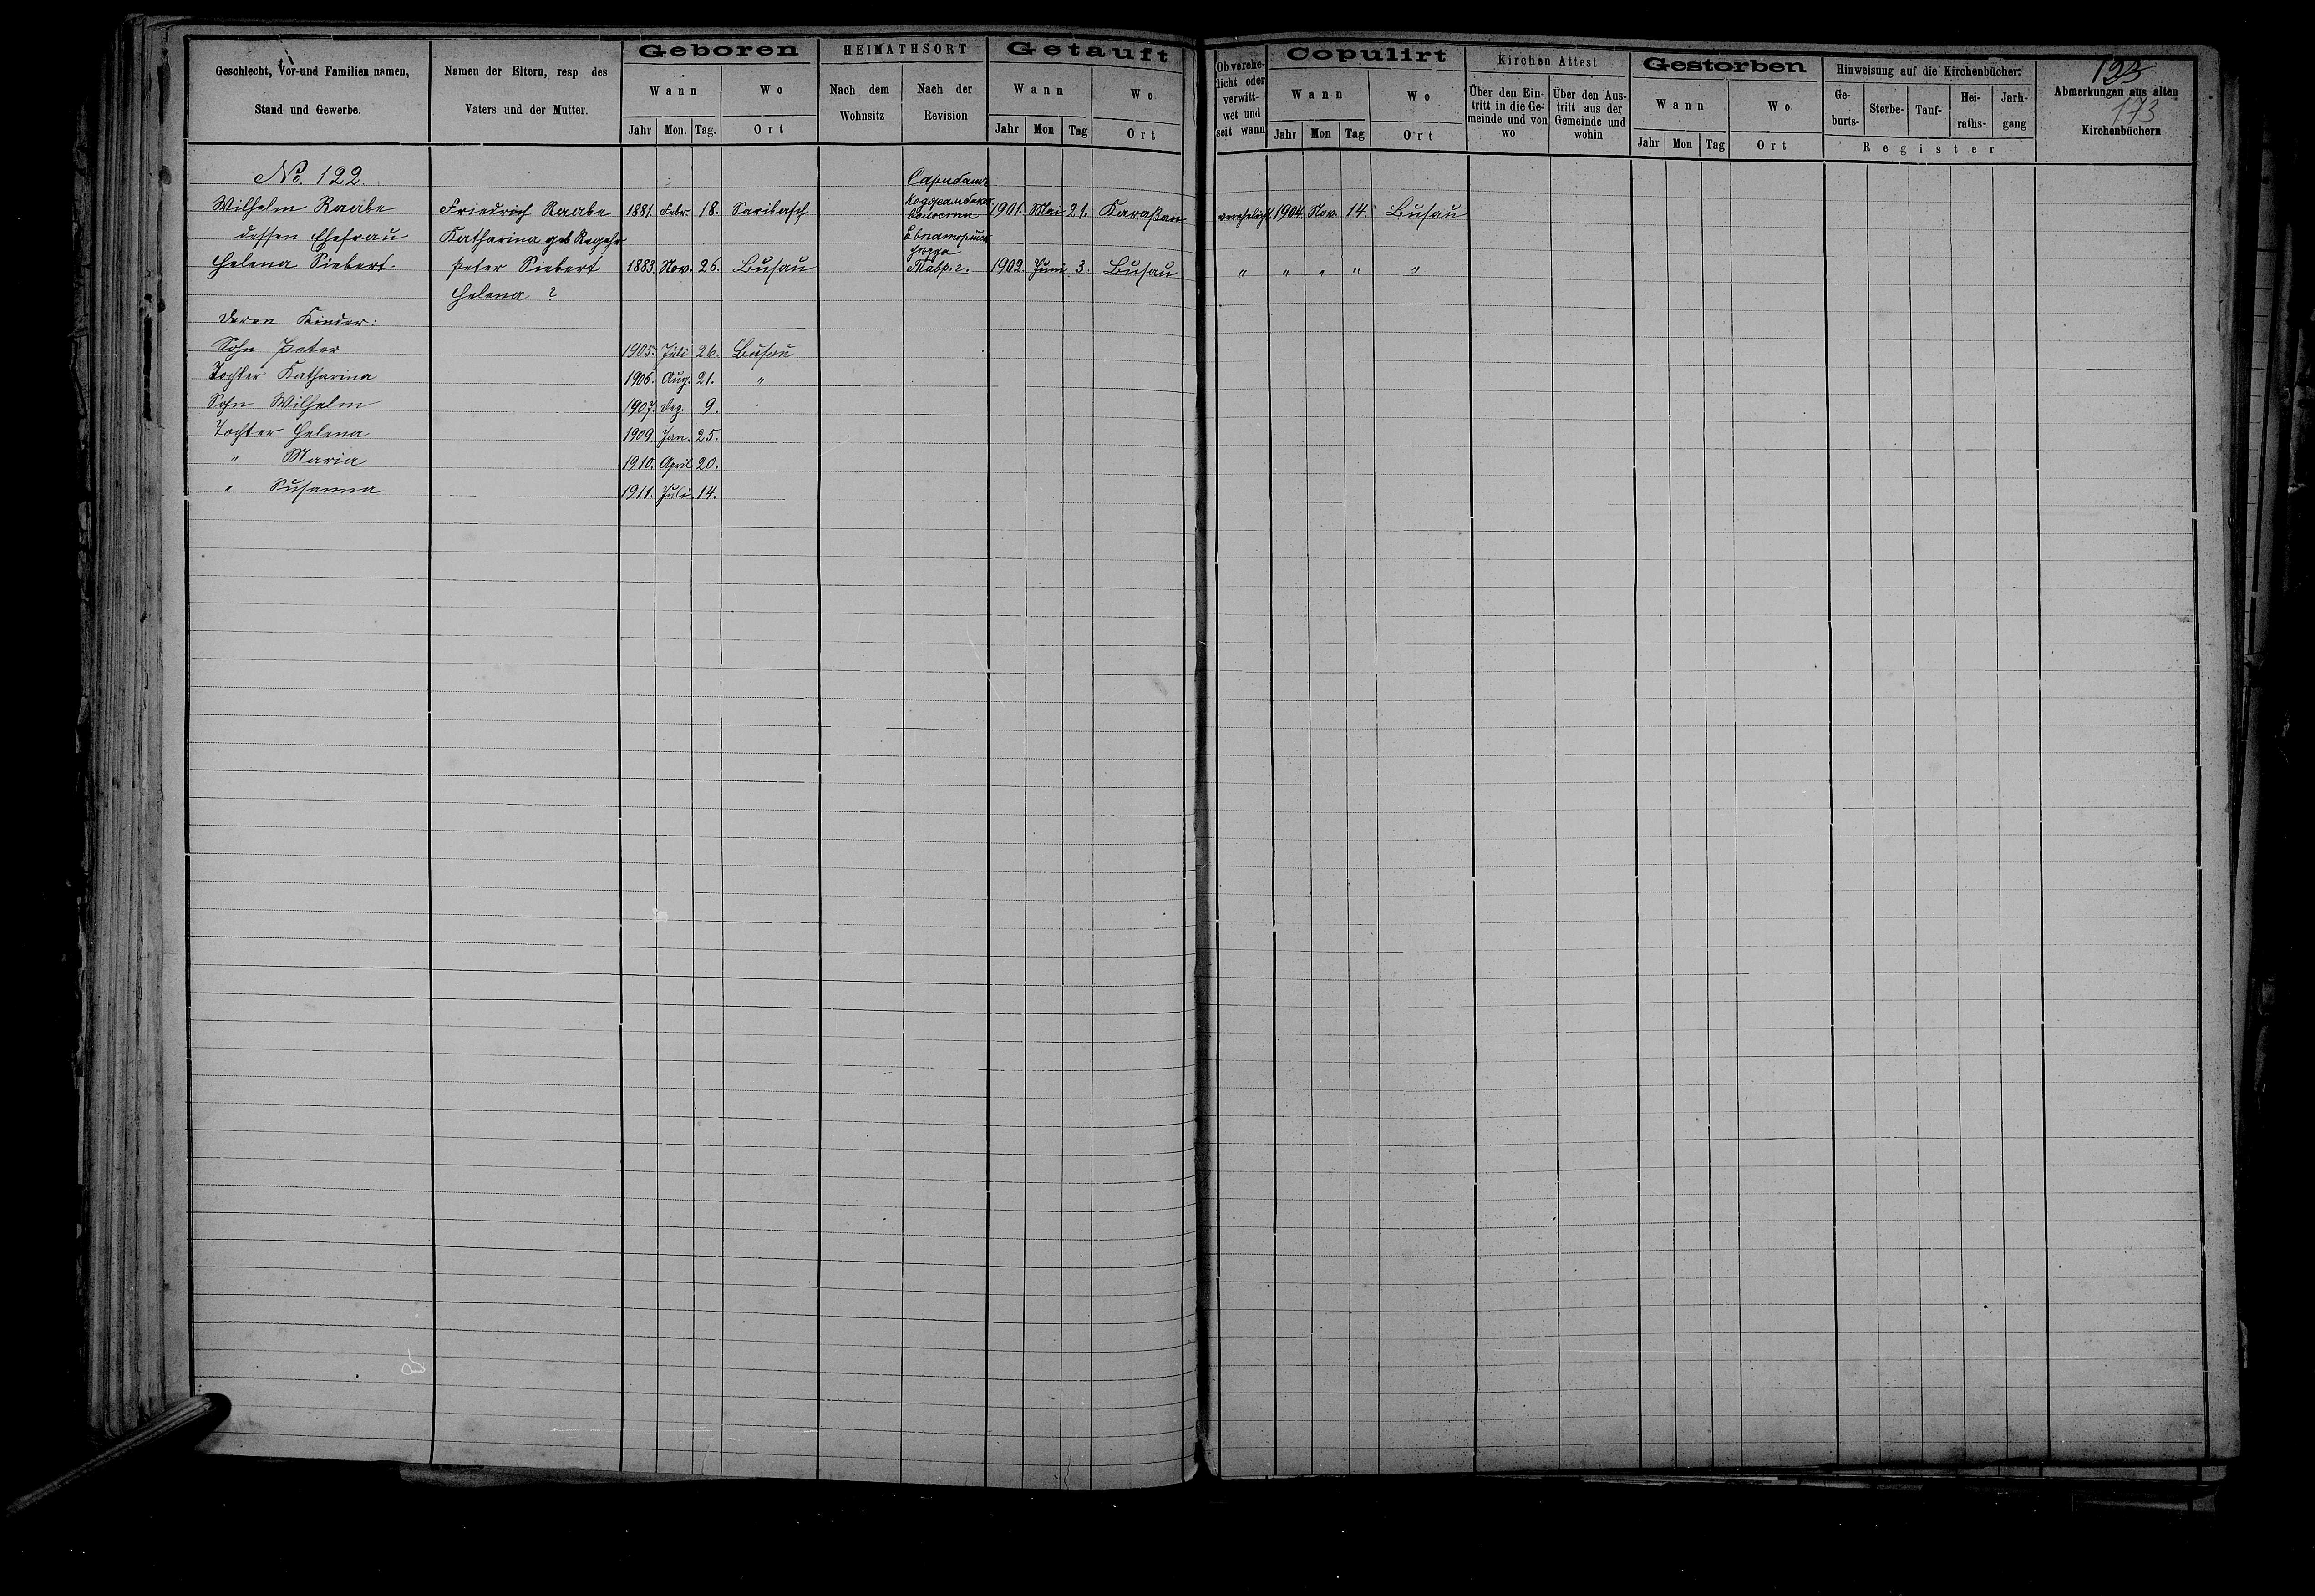 Geboren HEIMATHSORT Getauft
Geschlecht, Vor-und Familien namen, Namen der Eltern, resp des Wann Wo Nach dem Nach der Wann Wo
Stand und Gewerbe. Vaters und der Mutter. Wohnsitz Revision
Jahr Mon. Tag. Ort Jahr Mon Tag Ort
No. 122.
Сарибашъ
Wilhelm Raabe Friedrich Raabe 1881. Febr. 18. Saribasch волости 1901. Mai 21. Karaßan
dessen Ehefrau Katharina geb Regehr
Helena Siebert. Peter Siebert 1883. Nov. 26. Busau Тавр. г. 1902. Juni 3. Busau
Helena ?
Deren Kinder:
Sohn Peter 1905. Juli 26. Busau
Tochter Katharina 1906. Aug. 21. "
Sohn Wilhelm 1907. Dez. 9.
Tochter Helena 1909. Jan. 25.
" Maria 1910. April 20.
" Susanna 1911. Juli. 14.
Ob verehe-
licht oder
verwitt-
wet und
seit wann
Copulirt Kirchen Attest Gestorben Hinweisung auf die Kirchenbücher:
Wann Wo
Jahr Mon Tag Ort
Über den Ein-
tritt in die Ge-
meinde und von
wo
Über den Aus-
tritt aus der
Gemeinde und
wohin
Wann Wo
Jahr Mon Tag Ort
Ge-
burts-
Sterbe- Tauf-
Hei-
raths-
Jarh-
gang
Register
Abmerkungen aus alten
173
Kirchenbüchern
verehelicht 1904. Nov. 14. Busau
" " " " "